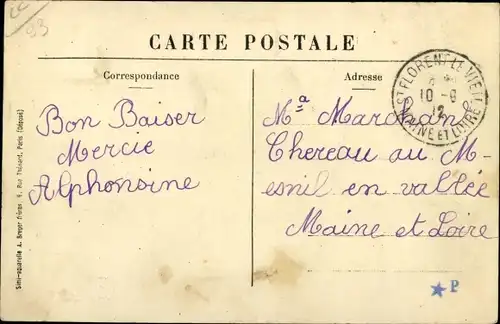 CARTE POSTALE
Correspondance
Bon Baiser
Mercie
Alphonsine
Adresse
Mª Marchand
Chereau au M-
esnil en vallée
Maine et Loire
ST FLORENT LE VIEIL
10-6
12
MAINE ET LOIRE
P
93
Simi-aquarelle A. Breger frères, 9, Rue Thénard, Paris (Déposé)